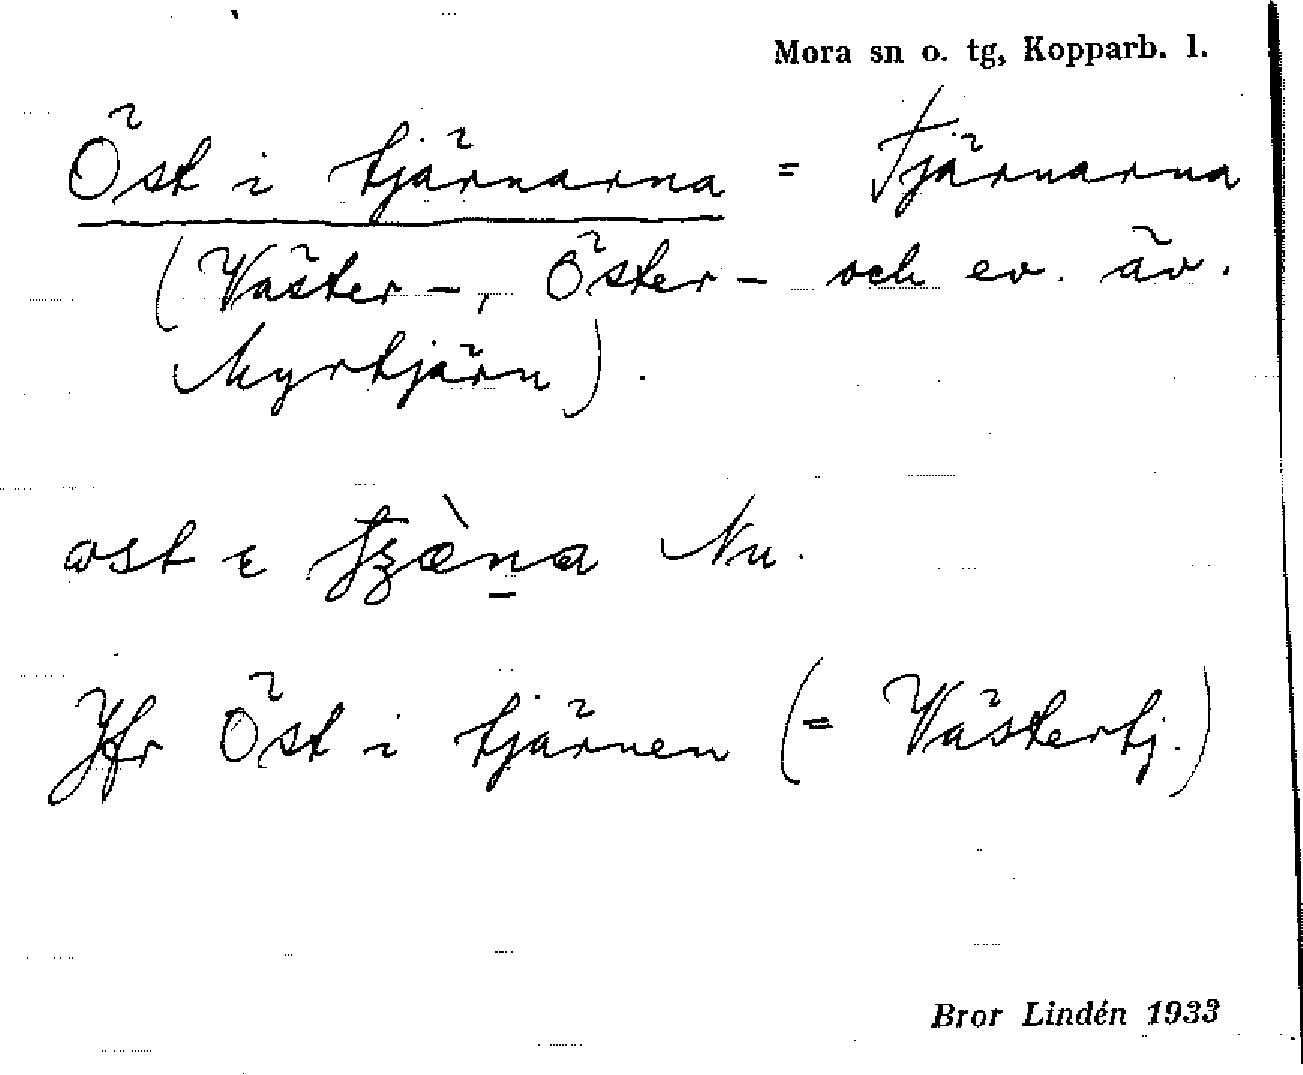 Mora sn o. tg, Kopparb. l.
Öst i tjärnarna = Tjärnarna
(Väster-, Öster- och ev. äv.
Myrtjärn).
Nu.
Jfr Öst i tjärnen (= Västertj.)
Bror Lindén 1933